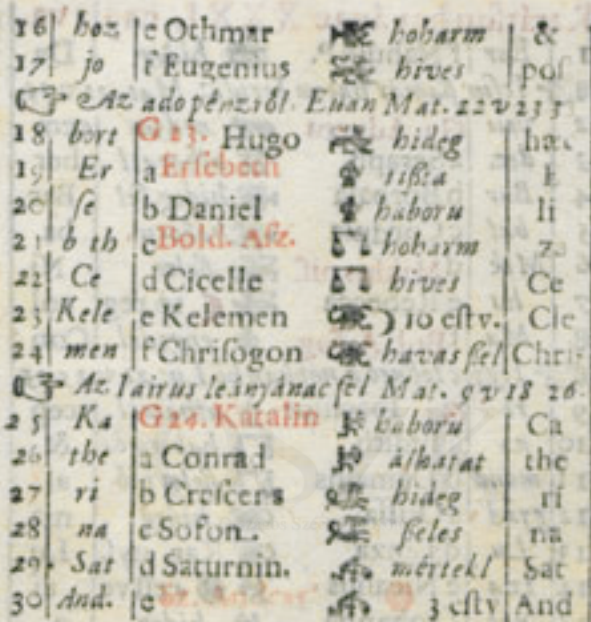 16 hoz e Othmar hoharm &
17 jo f Eugenius hives poſ
Az ado pénzröl. Euan Mat. 22 v 233
18 bort G 23. Hugo hideg hæc
19 Er a Erſebeth tißta
20 ſe b Daniel haboru li
21 b th c Bold. Aſz. hoharm
22 Ce d Cicelle hives Ce
23 Kele e Kelemen ) 10 eſtv. Cle
24 men f Chriſogon havas ſzel Chri
Az Iairus leánjánac fel Mat. 9 v 18 26.
25 Ka G 24. Katalin haboru Ca
26 the a Conrad the
27 ri b Creſcens hideg ri
28 na c Sofon. ßeles na
29 Sat d Saturnin. mértekl Sat
30 And. e 3 eſtv And